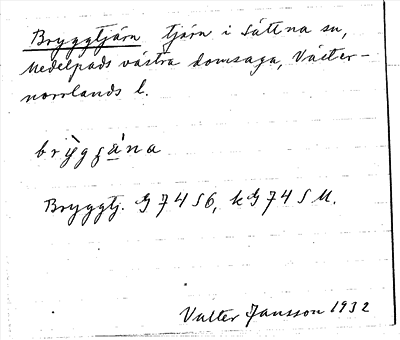 Bryggtjärn tjärn i Sättna sn,
Medelpads västra domsaga, Väster-
norrlands l.
Bryggtj. G 74 S6, k G 74 S M.
Valter Jansson 1932